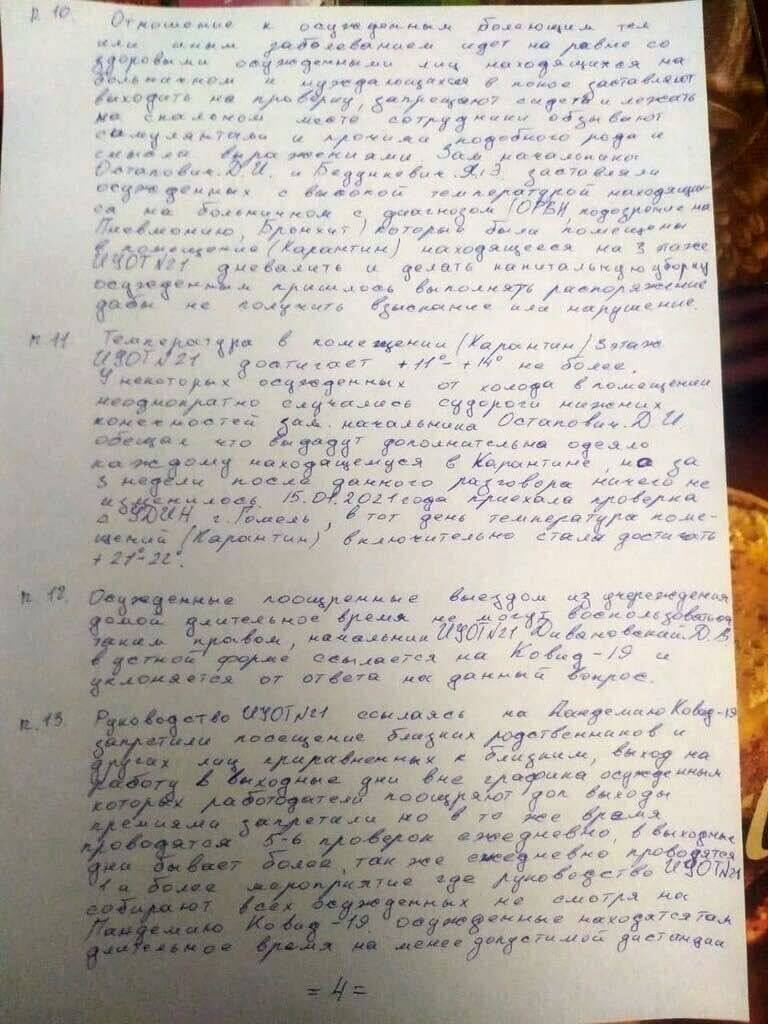 п. 10. Отношение к осужденным болеющим тем
или иным заболеванием идет на равне со
здоровыми осужденными лиц находящихся на
больничном и нуждающихся в покое заставляют
выходить на проверку, запрещают сидеть и лежать
на спальном месте сотрудники обзывают
симулянтами и прочими подобного рода и
смысла выражениями. Зам. начальника
Остапович Д.И. и Бедункевич Я.Э. заставляли
осужденных с высокой температурой находящи-
ся на больничном с диагнозом (ОРВИ, подозрение на
Пневмонию, Бронхит) которые были помещены
в помещение (Карантин) находящееся на 3 этаже
ИУОТ №21 дневалить и делать капитальную уборку
осужденным пришлось выполнять распоряжение
дабы не получить взыскание или нарушение.
п. 11 Температура в помещении (Карантин) 3 этаж
ИУОТ №21 достигает +11°-+14° не более.
У некоторых осужденных от холода в помещении
неоднократно случались судороги нижних
конечностей зам. начальника Остапович Д.И.
обещал что выдадут дополнительна одеяло
каждому находящемуся в Карантине, на за
3 недели после данного разговора ничего не
изменилось. 15.01.2021 года приехала проверка
с УДИН г. Гомель, в тот день температура поме-
щений (Карантин) включительно стала достигать
+21°-22°.
п. 12. Осужденные поощренные выездом из учереждения
домой длительное время не могут воспользоваться
таким правом, начальник ИУОТ №21 Дивановский Д.В.
в устной форме ссылается на Ковид-19 и
уклоняется от ответа на данный вопрос.
п. 13. Руководство ИУОТ №21 ссылаясь на Пандемию Ковид-19
запретили посещение близких родственников и
других лиц приравненных к близким, выход на
работу в выходные дни вне графика осужденным
которых работодатели поощряют доп выходы
премиями запретили но в то же время
проводятся 5-6 проверок ежедневно, в выходные
дни бывает более, так же ежедневно проводятся
1 и более мероприятие где руководство ИУОТ №21
собирают всех осужденных не смотря на
Пандемию Ковид-19. осужденные находятся там
длительное время на менее допустимой дистанции
= 4 =